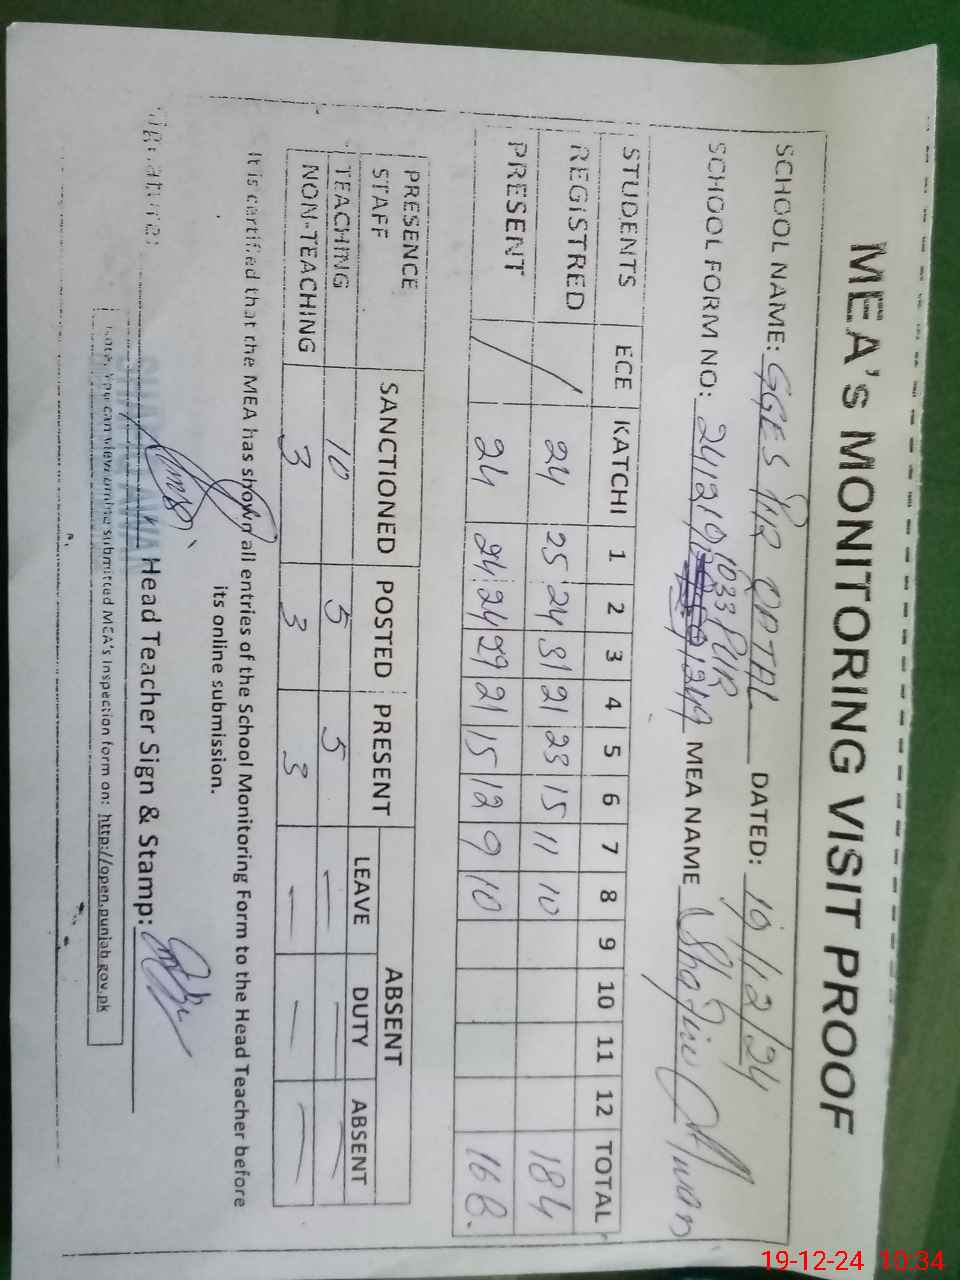 MEA's MONITORING VISIT PROOF
SCHOOL NAME: GGES PIR QATAL DATED: 19/12/24
1033 PUR
SCHOOL FORM NO: 2412101249 MEA NAME
STUDENTS ECE KATCHI 1 2 3 4 5 6 7 8 9 10 11 12 TOTAL
REGISTRED / 24 25 24 31 21 23 15 11 10 184
PRESENT / 24 24 24 29 21 15 12 9 10 168.
PRESENCE STAFF SANCTIONED POSTED PRESENT ABSENT
LEAVE DUTY ABSENT
TEACHING 10 5 5 — — —
NON-TEACHING 3 3 3 — — —
It is certified that the MEA has shown all entries of the School Monitoring Form to the Head Teacher before
its online submission.
Signature: Head Teacher Sign & Stamp:
Note: You can view online submitted MEA's Inspection form on: http://open.punjab.gov.pk
19-12-24 10:34